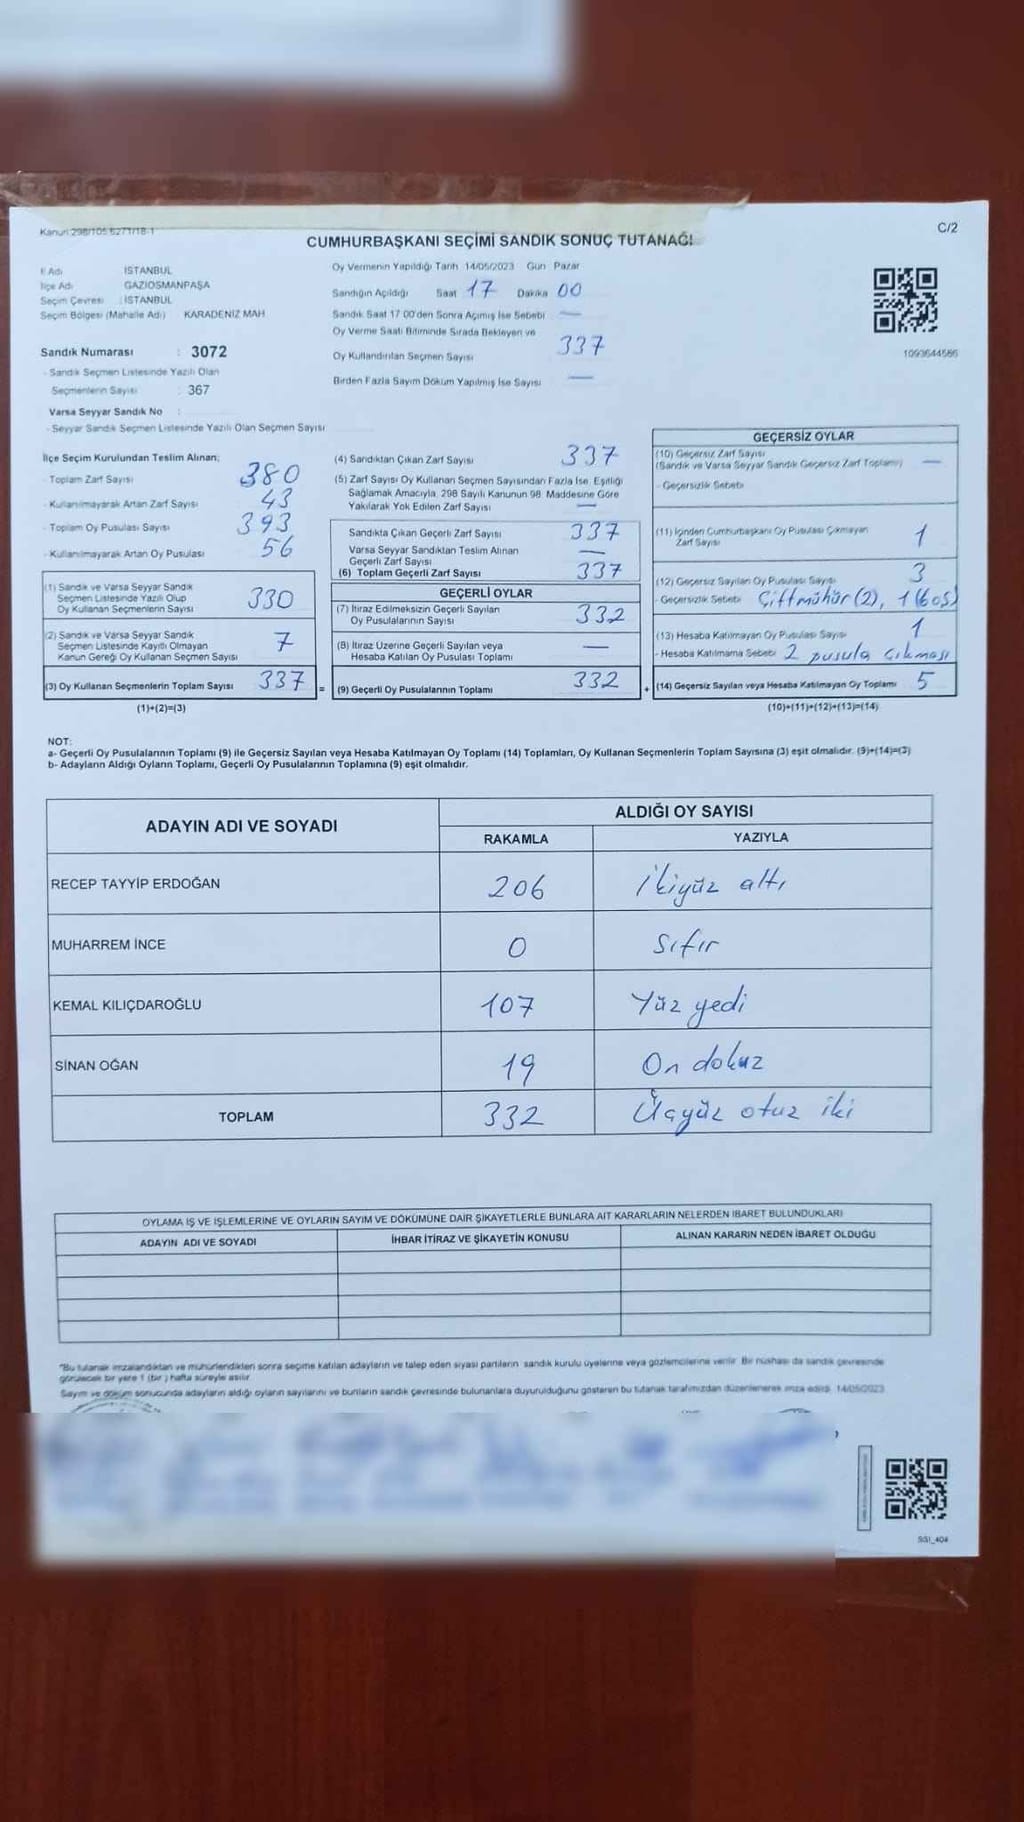 Kanun:298/105 6271/18-1
C/2
CUMHURBAŞKANI SEÇİMİ SANDIK SONUÇ TUTANAĞI
İl Adı İSTANBUL
İlçe Adı GAZİOSMANPAŞA
Seçim Çevresi : İSTANBUL
Seçim Bölgesi (Mahalle Adı) KARADENİZ MAH
Sandık Numarası : 3072
- Sandık Seçmen Listesinde Yazılı Olan
Seçmenlerin Sayısı : 367
Varsa Seyyar Sandık No :
- Seyyar Sandık Seçmen Listesinde Yazılı Olan Seçmen Sayısı
Oy Vermenin Yapıldığı Tarih 14/05/2023 Gün Pazar
Sandığın Açıldığı Saat 17 Dakika 00
Sandık Saat 17 00'den Sonra Açımış İse Sebebi —
Oy Verme Saati Bitiminde Sırada Bekleyen ve
Oy Kullandırılan Seçmen Sayısı 337
Birden Fazla Sayım Döküm Yapılmış İse Sayısı —
1093644586
İlçe Seçim Kurulundan Teslim Alınan;
- Toplam Zarf Sayısı 380
- Kullanılmayarak Artan Zarf Sayısı 43
- Toplam Oy Pusulası Sayısı 393
- Kullanılmayarak Artan Oy Pusulası 56
(1) Sandık ve Varsa Seyyar Sandık
Seçmen Listesinde Yazılı Olup
Oy Kullanan Seçmenlerin Sayısı 330
(2) Sandık ve Varsa Seyyar Sandık
Seçmen Listesinde Kayıtlı Olmayan
Kanun Gereği Oy Kullanan Seçmen Sayısı 7
(3) Oy Kullanan Seçmenlerin Toplam Sayısı 337 =
(1)+(2)=(3)
(4) Sandıktan Çıkan Zarf Sayısı 337
(5) Zarf Sayısı Oy Kullanan Seçmen Sayısından Fazla İse, Eşitliği
Sağlamak Amacıyla, 298 Sayılı Kanunun 98. Maddesine Göre
Yakılarak Yok Edilen Zarf Sayısı —
Sandıkta Çıkan Zarf Sayısı 337
Varsa Seyyar Sandıktan Teslim Alınan
Geçerli Zarf Sayısı —
(6) Toplam Geçerli Zarf Sayısı 337
GEÇERLİ OYLAR
(7) İtiraz Edilmeksizin Geçerli Sayılan
Oy Pusulalarının Sayısı 332
(8) İtiraz Üzerine Geçerli Sayılan veya
Hesaba Katılan Oy Pusulası Toplamı —
(9) Geçerli Oy Pusulalarının Toplamı 332 +
GEÇERSİZ OYLAR
(10) Geçersiz Zarf Sayısı
(Sandık ve Varsa Seyyar Sandık Geçersiz Zarf Toplamı) —
- Geçersizlik Sebebi
(11) İçinden Cumhurbaşkanı Oy Pusulası Çıkmayan
Zarf Sayısı 1
(12) Geçersiz Sayılan Oy Pusulası Sayısı 3
- Geçersizlik Sebebi Çiftmühür (2), 1 (boş)
(13) Hesaba Katılmayan Oy Pusulası Sayısı 1
- Hesaba Katılmama Sebebi 2 pusula çıkması
(14) Geçersiz Sayılan veya Hesaba Katılmayan Oy Toplamı 5
(10)+(11)+(12)+(13)=(14)
NOT:
a- Geçerli Oy Pusulalarının Toplamı (9) ile Geçersiz Sayılan veya Hesaba Katılmayan Oy Toplamı (14) Toplamları, Oy Kullanan Seçmenlerin Toplam Sayısına (3) eşit olmalıdır. (9)+(14)=(3)
b- Adayların Aldığı Oyların Toplamı, Geçerli Oy Pusulalarının Toplamına (9) eşit olmalıdır.
ADAYIN ADI VE SOYADI ALDIĞI OY SAYISI
RAKAMLA YAZIYLA
RECEP TAYYİP ERDOĞAN 206 İkiyüz altı
MUHARREM İNCE 0 Sıfır
KEMAL KILIÇDAROĞLU 107 Yüz yedi
SİNAN OĞAN 19 On dokuz
TOPLAM 332 Üçyüz otuz iki
OYLAMA İŞ VE İŞLEMLERİNE VE OYLARIN SAYIM VE DÖKÜMÜNE DAİR ŞİKAYETLERLE BUNLARA AİT KARARLARIN NELERDEN İBARET BULUNDUKLARI
ADAYIN ADI VE SOYADI İHBAR İTİRAZ VE ŞİKAYETİN KONUSU ALINAN KARARIN NEDEN İBARET OLDUĞU
"Bu tutanak imzalandıktan ve mühürlendikten sonra seçime katılan adayların ve talep eden siyasi partilerin sandık kurulu üyelerine veya gözlemcilerine verilir. Bir nüshası da sandık çevresinde
görülecek bir yere 1 (bir) hafta süreyle asılır
Sayım ve döküm sonucunda adayların aldığı oyların sayılarını ve bunların sandık çevresinde bulunanlara duyurulduğunu gösteren bu tutanak tarafımızdan düzenlenerek imza edildi. 14/05/2023
SGI_404